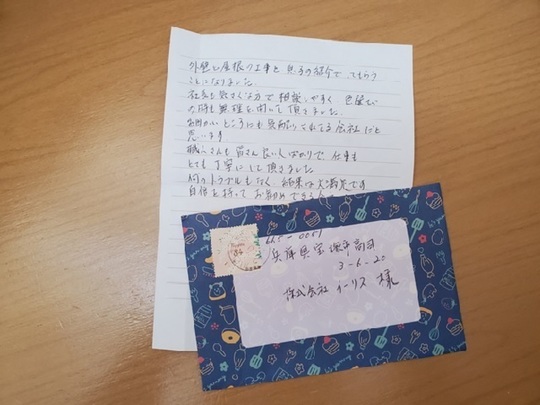 外壁と屋根の工事を 息子の紹介で してもらう
ことになりました。
社長も気さくな方で 相談しやすく 色選び
の時も無理を聞いて頂きました。
細かい ところにも気配りされてる会社だと
思います
職人さんも皆さん良い人ばかりで 仕事も
とても丁寧にして頂きました
何のトラブルもなく 結果は大満足です
自信を持って お勧めできる
84
665-0051
兵庫県宝塚市高司
3-6-20
株式会社 イーリス 様